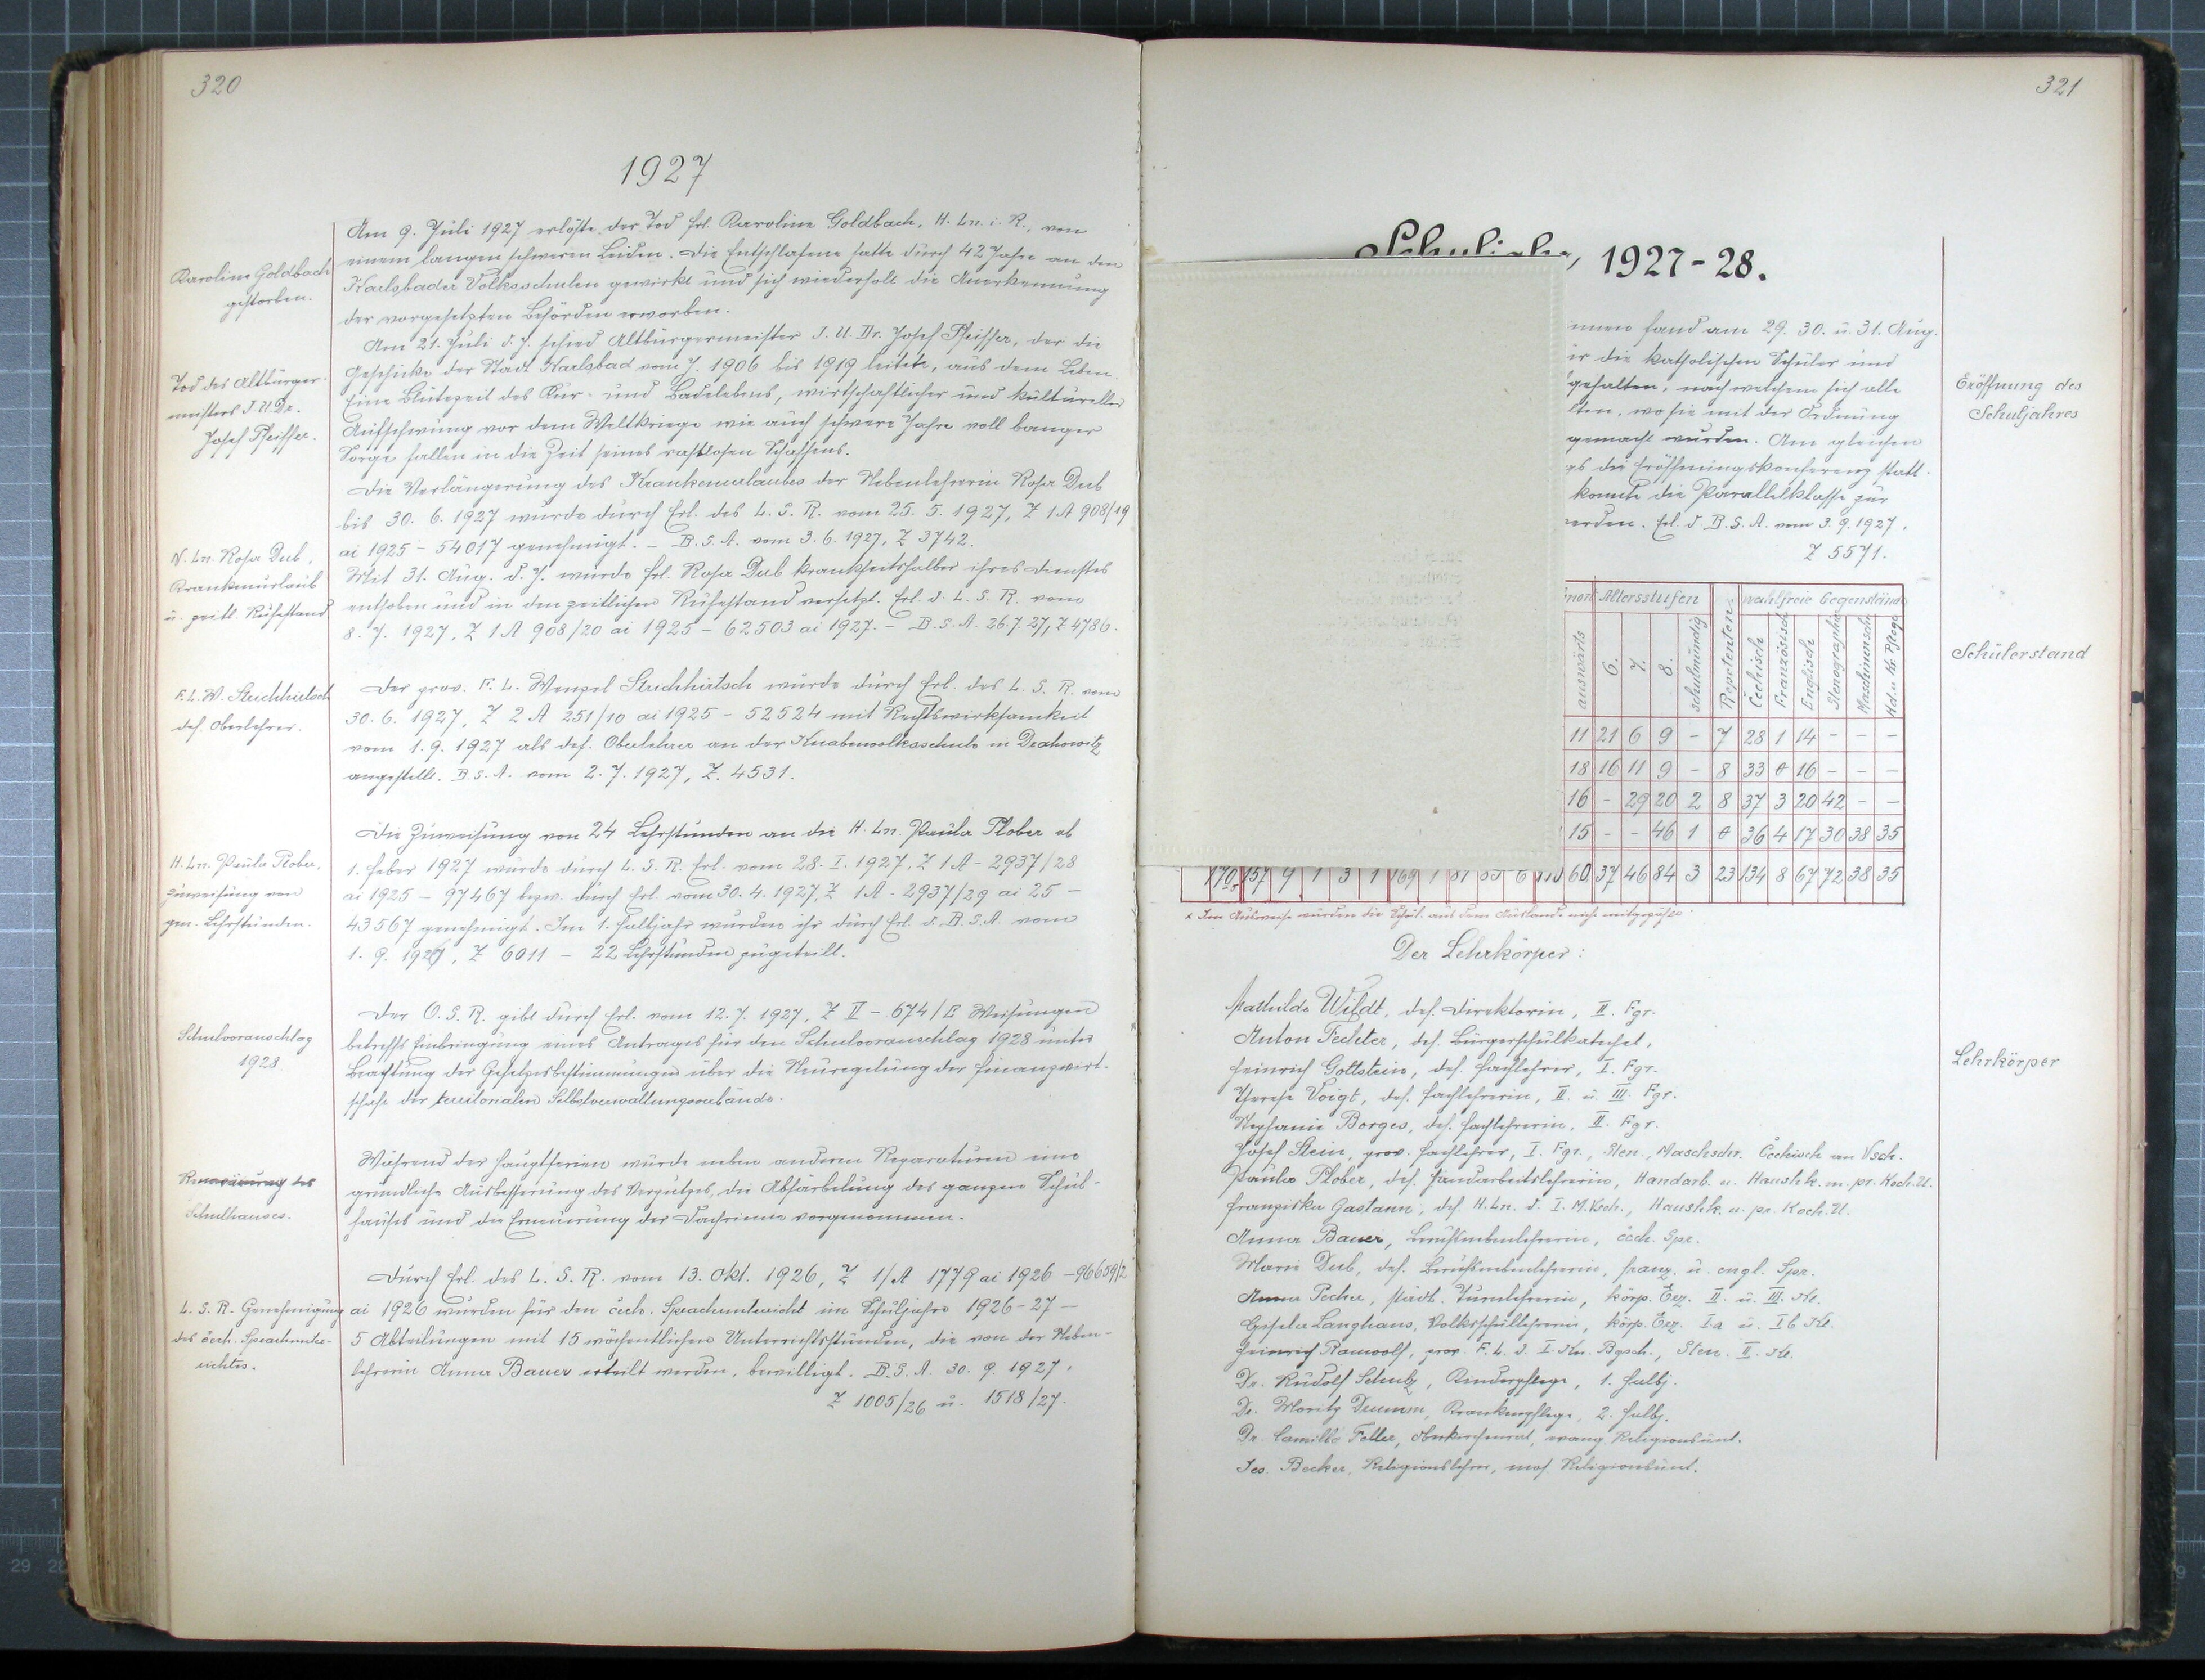 320
1927
Karoline Goldbach
gestorben.
Am 9. Juli 1927 erlöste der Tod Frl. Karoline Goldbach, H. Ln. i. R., von
einem langen schweren Leiden. Die Entschlafene hatte durch 42 Jahre an den
Karlsbader Volksschulen gewirkt und sich wiederholt die Anerkennung
der vorgesetzten Behörden erworben.
Tod des Altbürger-
meisters J. U. Dr.
Josef Pfeiffer.
Am 21. Juli d. J. schied Altbürgermeister J. U. Dr. Josef Pfeiffer, der die
Geschicke der Stadt Karlsbad vom J. 1906 bis 1919 leitete, aus dem Leben.
Eine Blütezeit des Kur- und Badelebens, wirtschaftlicher und kultureller
Aufschwung vor dem Weltkriege wie auch schwere Jahre voll banger
Sorge fallen in die Zeit seines rastlosen Schaffens.
N. Ln. Rosa Dub,
Krankenurlaub
u. zeitl. Ruhestand
Die Verlängerung des Krankenurlaubes der Nebenlehrerin Rosa Dub
bis 30. 6. 1927 wurde durch Erl. des L. S. R. vom 25. 5. 1927, Z 1 A 908/19
ai 1925 - 54017 genehmigt. - B. S. A. vom 3. 6. 1927, Z 3742.
Mit 31. Aug. d. J. wurde Frl. Rosa Dub krankheitshalber ihres Dienstes
enthoben und in den zeitlichen Ruhestand versetzt. Erl. d. L. S. R. vom
8. 7. 1927, Z 1 A 908/20 ai 1925 - 62503 ai 1927. - B. S. A. 26. 7. 27, Z 4786.
F. L. W. Strichhirtsch
def. Oberlehrer.
Der prov. F. L. Wenzel Strichhirtsch wurde durch Erl. des L. S. R. vom
30. 6. 1927, Z 2 A 251/10 ai 1925 - 52524 mit Rechtswirksamkeit
vom 1. 9. 1927 als def. Oberlehrer an der Knabenvolksschule in Drahowitz
angestellt. B. S. A. vom 2. 7. 1927, Z. 4531.
H. Ln. Paula Plober,
Zuweisung von
Lehrstunden.
Die Zuweisung von 24 Lehrstunden an die H. Ln. Paula Plober ab
1. Feber 1927 wurde durch L. S. R. Erl. vom 28. I. 1927, Z 1 A - 2937/28
ai 1925 - 97467 bezw. durch Erl. vom 30. 4. 1927, Z 1 A - 2937/29 ai 25 -
43567 genehmigt. Im 1. Halbjahr wurden ihr durch Erl. d. B. S. A. vom
1. 9. Z 6011 - 22 Lehrstunden zugeteilt.
Schulvoranschlag
1928.
Der O. S. R. gibt durch Erl. vom 12. 7. 1927, Z II - 674/E Weisungen
betreffs Einbringung eines Antrages für den Schulvoranschlag 1928 unter
Beachtung der Gesetzesbestimmungen über die Neuregelung der Finanzwirt-
schaft der territorialen Selbstverwaltungsverbände.
des
Schulhauses.
Während der Hauptferien wurde neben anderen Reparaturen eine
gründliche Ausbesserung des Verputzes, die Abfärbelung des ganzen Schul-
hauses und die Erneuerung der Dachrinne vorgenommen.
L. S. R. Genehmigung
des čech. Sprachunter-
richtes.
Durch Erl. des L. S. R. vom 13. Okt. 1926, Z 1/A 1779 ai 1926 - 96659/2
ai 1926 wurden für den čech. Sprachunterricht im Schuljahre 1926-27 -
5 Abteilungen mit 15 wöchentlichen Unterrichtsstunden, die von der Neben-
lehrerin Anna Bauer erteilt werden, bewilligt. B. S. A. 30. 9. 1927.
Z 1005/26 u. 1518/27.
321
1927-28.
innen fand am 29. 30. u. 31. Aug.
die katholischen Schüler und
gehalten, nach welchem sich alle
lten, wo sie mit der Ordnung
gemacht wurden. Am gleichen
die Eröffnungskonferenz statt.
konnte die Parallelklasse zur
erden. Erl. d. B. S. A. vom 3. 9. 1927,
Z 5571.
Eröffnung des
Schuljahres
Schülerstand
Altersstufen wahlfreie Gegenstände
auswärts 6. 7. 8. schulmündig Repetenten Čechisch Französisch Englisch Stenographie Maschinensch. Kd. u. Kr. Pflege
11 21 6 9 - 7 28 1 14 - - -
18 16 11 9 - 8 33 0 16 - - -
16 - 29 20 2 8 37 3 20 42 - -
15 - - 46 1 0 36 4 17 30 38 35
60 37 46 84 3 23 134 8 67 72 38 35
x Im Ausweise wurden die Schül. aus dem Auslande nicht mitgezählt.
Der Lehrkörper:
Lehrkörper
Mathilde Wildt, def. Direktorin, II. Fgr.
Anton Fechter, def. Bürgerschulkatechet,
Heinrich Gottstein, def. Fachlehrer, I. Fgr.
Therese Voigt, def. Fachlehrerin, II. u. III. Fgr.
Stephanie Borges, def. Fachlehrerin, II. Fgr.
Josef Stein, prov. Fachlehrer, I. Fgr., Sten., Maschschr. Čechisch an Vsch.
Paula Plober, def. Handarbeitslehrerin, Handarb. u. Haushk. m. pr. Koch. U.
Franziska Gastann, def. H. Ln. d. I. M. Vsch., Haushk. u. pr. Koch. U.
Anna Bauer, Berufsnebenlehrerin, čech. Spr.
Marie Dub, def. Berufsnebenlehrerin, franz. u. engl. Spr.
Anna Pecher, städt. Turnlehrerin, körp. Erz. II. u. III. Kl.
Gisela Langhans, Volksschullehrerin, körp. Erz. Ia u. Ib Kl.
Heinrich Ramwolf, prov. F. L. d. I. Kn. Bgsch., Sten. II. Kl.
Dr. Rudolf Schulz, Kinderpflege, 1. Halbj.
Dr. Moritz Drumm, Krankenpflege, 2. Halbj.
Dr. Camillo Feller, Oberkirchenrat, evang. Religionsunt.
Jos. Becker, Religionslehrer, mos. Religionsunt.